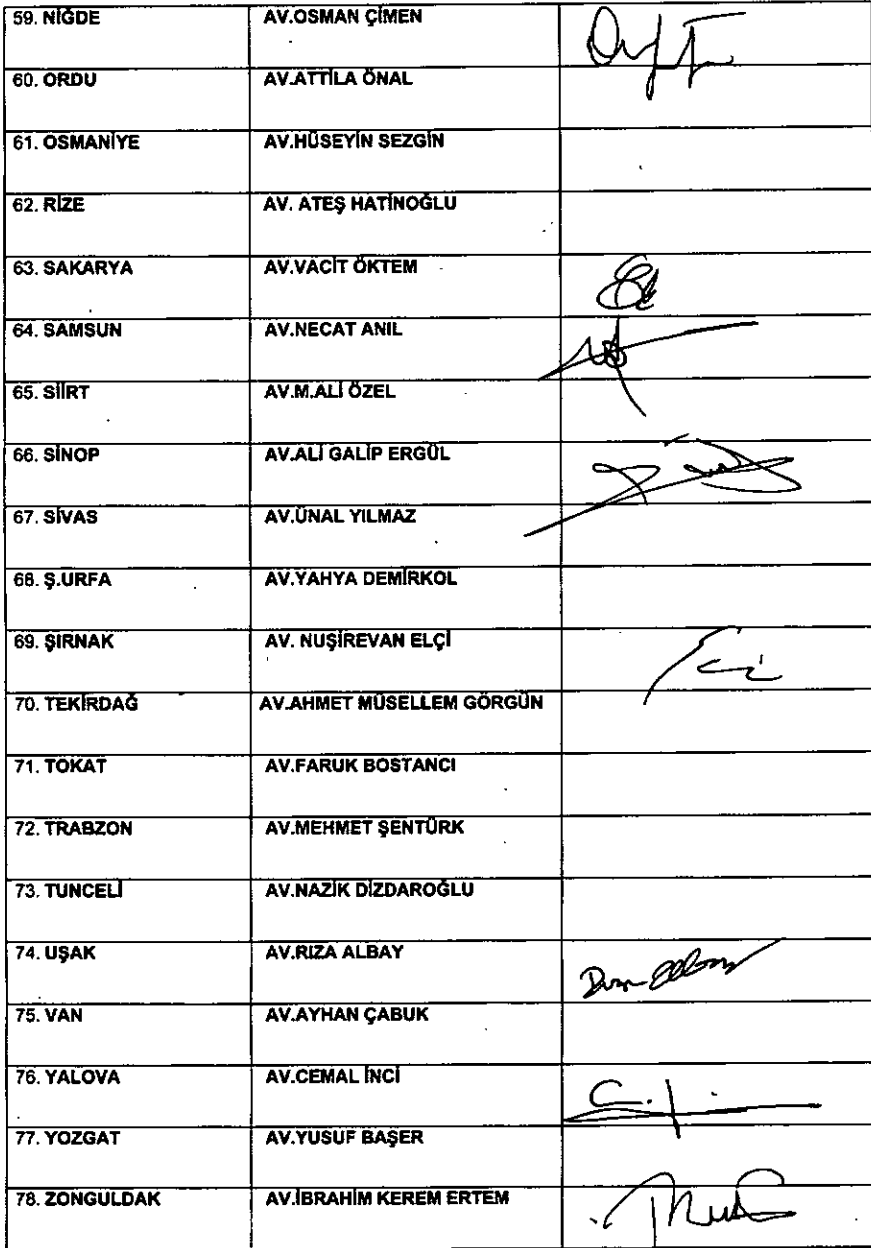 59. NİĞDE AV.OSMAN ÇİMEN
60. ORDU AV.ATTİLA ÖNAL
61. OSMANİYE AV.HÜSEYİN SEZGİN
62. RİZE AV. ATEŞ HATİNOĞLU
63. SAKARYA AV.VACİT ÖKTEM
64. SAMSUN AV.NECAT ANIL
65. SİİRT AV.M.ALİ ÖZEL
66. SİNOP AV.ALİ GALİP ERGÜL
67. SİVAS AV.ÜNAL YILMAZ
68. Ş.URFA AV.YAHYA DEMİRKOL
69. ŞIRNAK AV. NUŞİREVAN ELÇİ
70. TEKİRDAĞ AV.AHMET MÜSELLEM GÖRGÜN
71. TOKAT AV.FARUK BOSTANCI
72. TRABZON AV.MEHMET ŞENTÜRK
73. TUNCELİ AV.NAZİK DİZDAROĞLU
74. UŞAK AV.RIZA ALBAY
75. VAN AV.AYHAN ÇABUK
76. YALOVA AV.CEMAL İNCİ
77. YOZGAT AV.YUSUF BAŞER
78. ZONGULDAK AV.İBRAHİM KEREM ERTEM